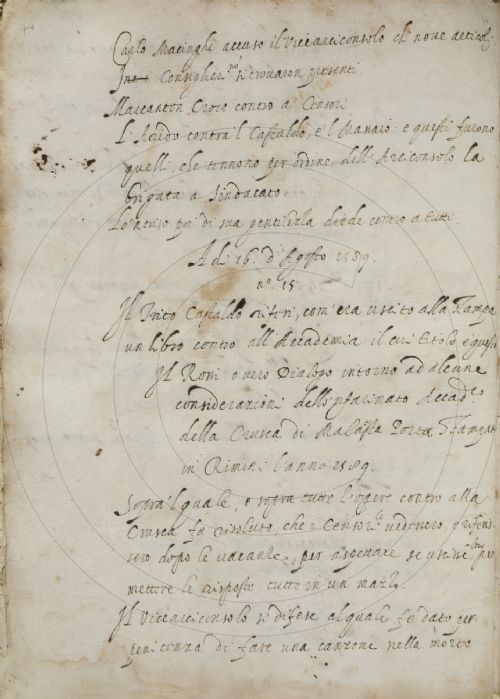 Carlo Macinghi accusò il Vicearciconsolo di nove articoli
Consiglieri no' si trovaron presenti
Marcanton Croci contro a' Censori
L'Arido contra 'l Castaldo, e 'l Massaio e questi furono
quelli, che tennono per ordine dell'Arciconsolo la
brigata a Sindacato.
poi di sua gentilezza diede contro a tutti.
A di 16. d'Agosto 1589.
no. 15.
Il Trito Castaldo riferì, com'era uscito alla stampa
un libro contro all'Accademia il cui titolo è questo
Il Rossi o vero Dialogo intorno ad alcune
considerazioni dello 'nfarinato Accad.co
della Crusca di Malatesta Porta stampato
in Rimini l'anno 1589.
Sopra 'l quale, e sopra tutte l'opere contro alla
Crusca fu risoluto, che i Censori le vedessero, e riferis-
sero dopo le vacanze, per aspettare se uscisse altro per
mettere le risposte tutte in un mazzo.
Il Vicearciconsolo si difese al quale fu dato per
penitenza di fare una canzone nella morte